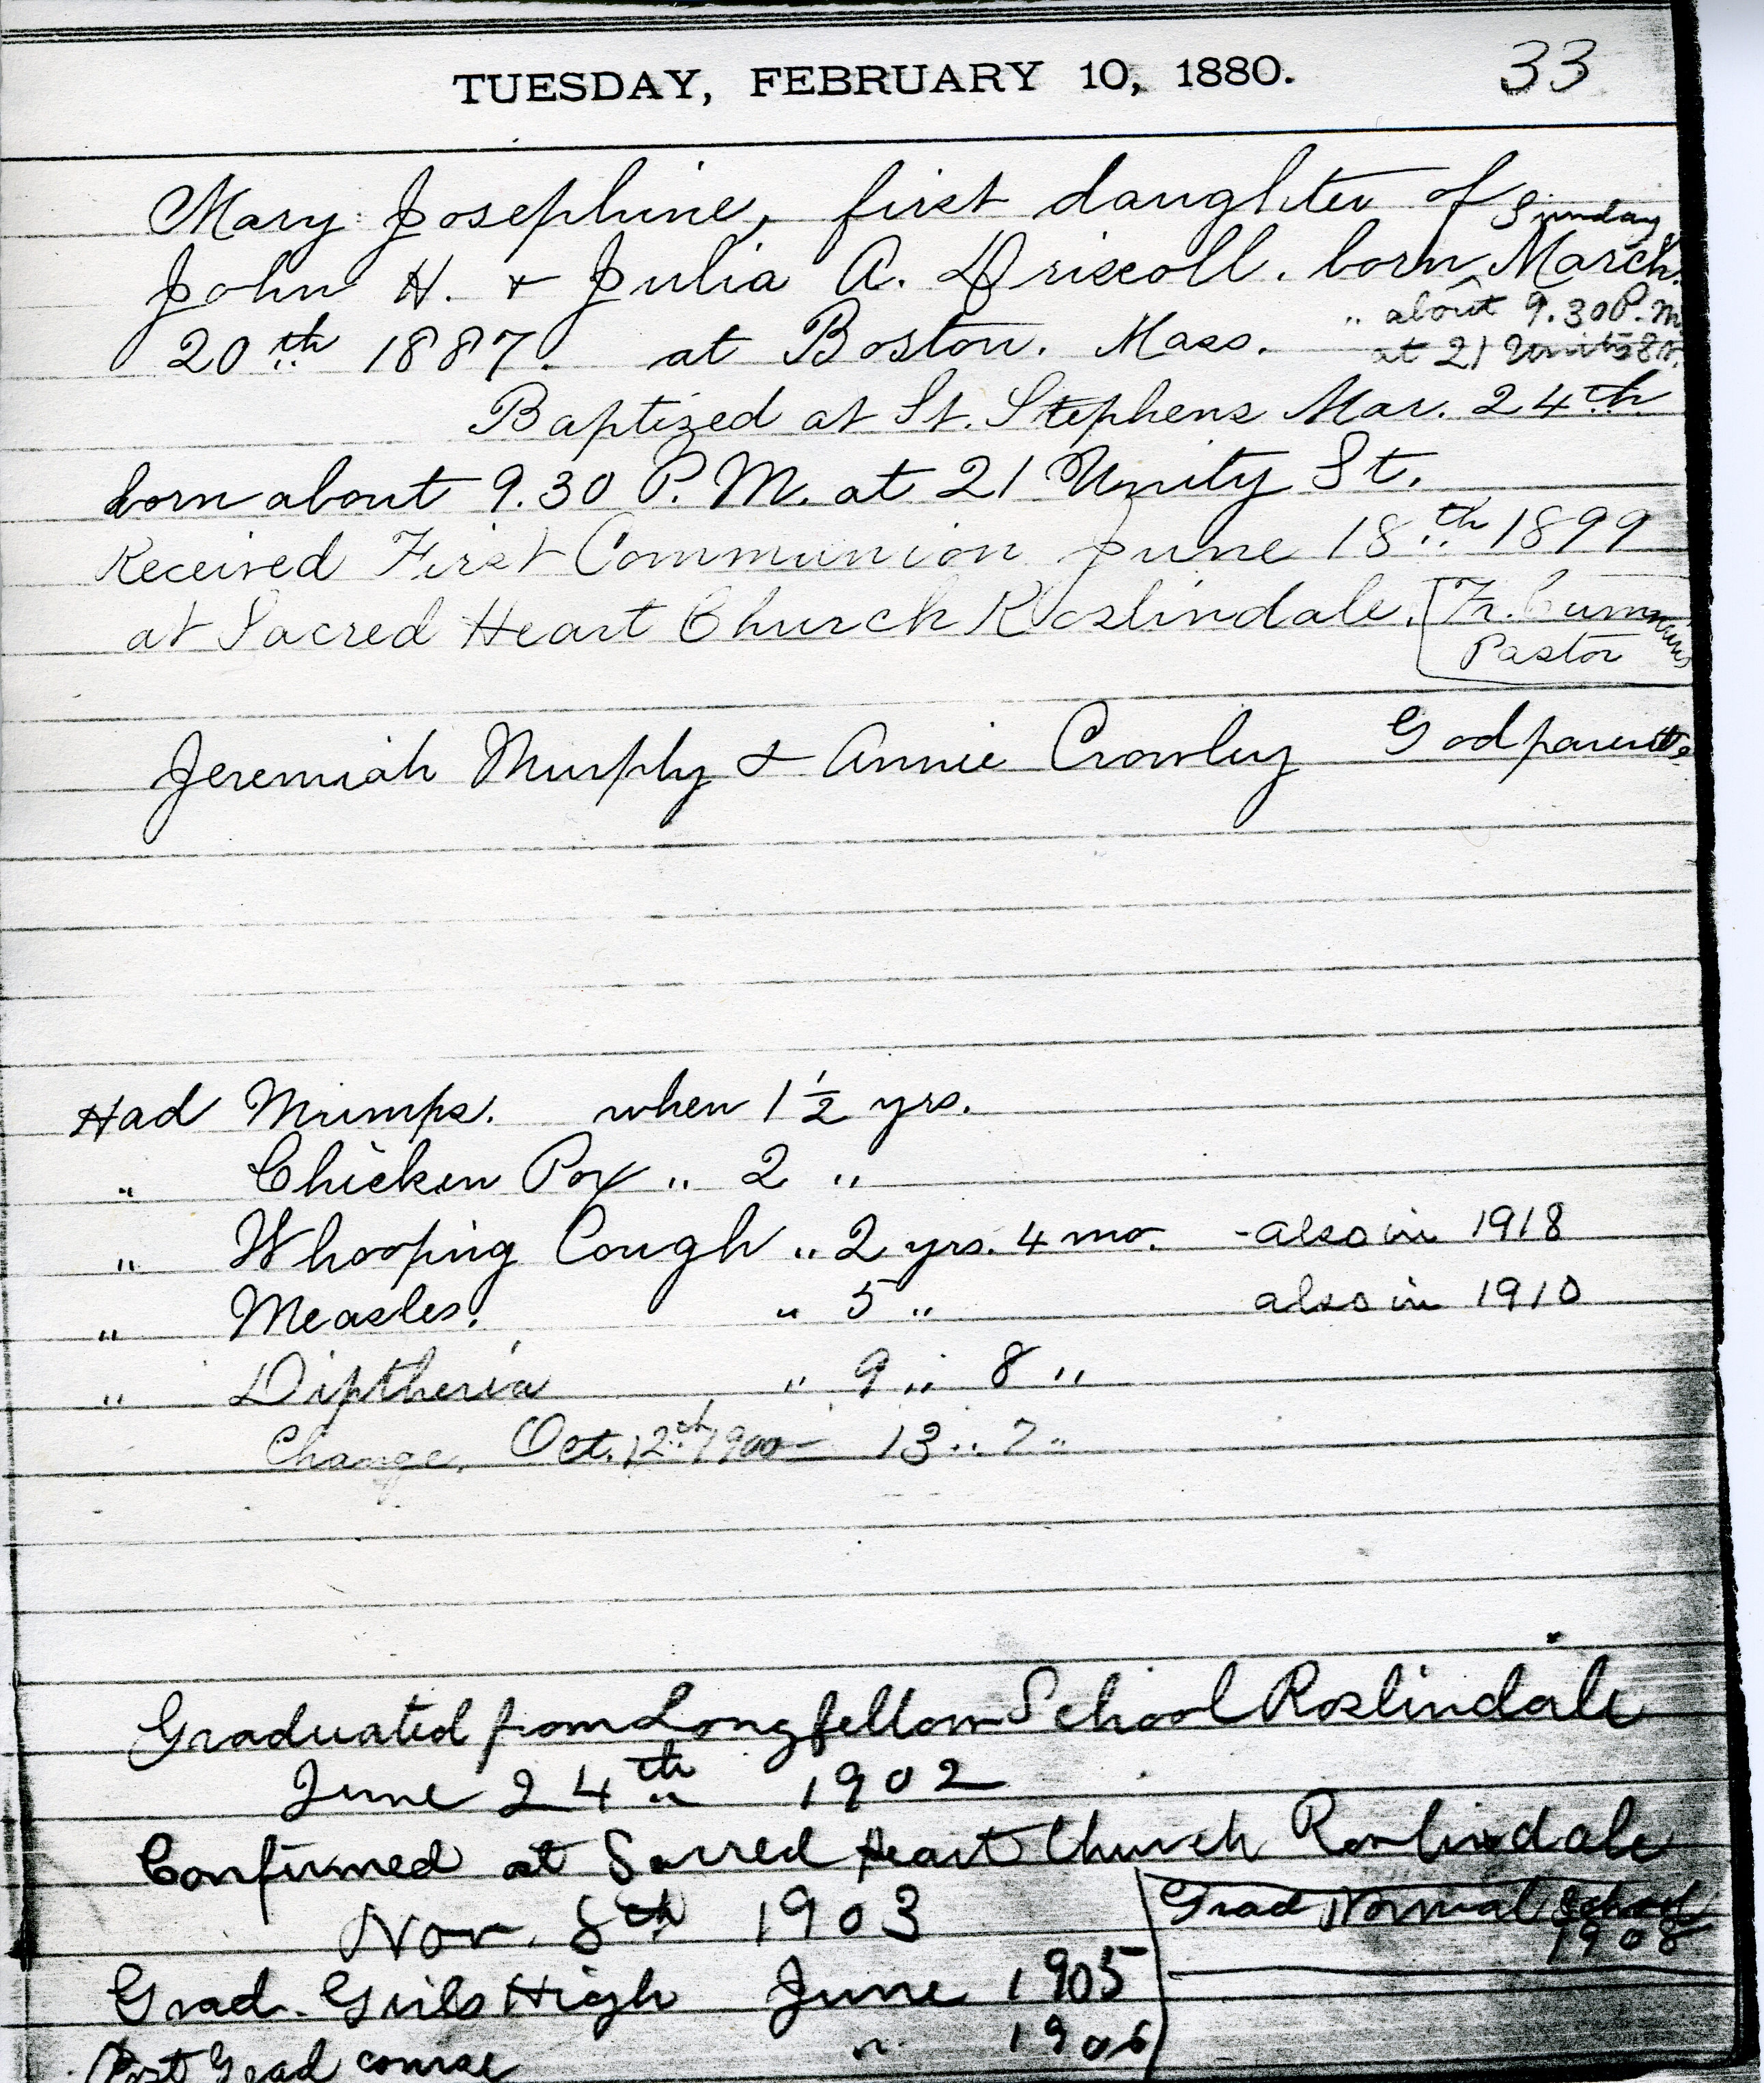 TUESDAY, FEBRUARY 10, 1880. 33
Mary Josephine, first daughter of Sunday
John H. + Julia A. Driscoll. born March
20th 1887. at Boston. Mass. " about 9.30 P.M.
at 21 Unity St.
Baptized at St. Stephens Mar. 24th
born about 9.30 P.M. at 21 Unity St.
Received First Communion June 18th 1899
at Sacred Heart Church Roslindale. Fr. Cummins
Pastor
Jeremiah Murphy & Annie Crowley Godparents
Had Mumps. when 1 1/2 yrs.
" Chicken Pox " 2 "
" Whooping Cough " 2 yrs. 4 mo. - also in 1918
" Measles. " 5 " also in 1910
" Diptheria " 9 " 8 "
Change. Oct. 12th 1900 - 13 " 7 "
Graduated from Longfellow School Roslindale
June 24th 1902
Confirmed at Sacred Heart Church Roslindale
Nov. 8th 1903
Grad Normal School
1908
Grad. Girls High June 1905
Post Grad course " 1906